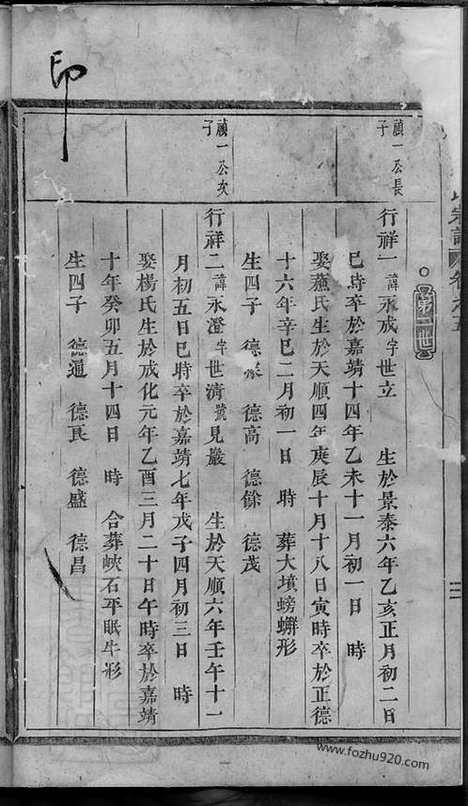 氏宗譜 卷之五
三
第一世
禎一公長子
行祥一諱永戒字世立 生於景泰六年乙亥正月初二日
巳時卒於嘉靖十四年乙未十一月初一日 時
娶蕭氏生於天順四年庚辰十月十八日寅時卒於正德
十六年辛巳二月初一日 時 葬大墳螃蠏形
生四子 德 德高 德餘 德茂
禎一公次子
行祥二諱永澄字世清號見巖 生於天順六年壬午十一
月初五日巳時卒於嘉靖七年戊子四月初三日 時
娶楊氏生於成化元年乙酉三月二十日午時卒於嘉靖
十年癸卯五月十四日 時 合葬峽石平眠牛形
生四子 德通 德良 德盛 德昌
印
www.fozhu920.com